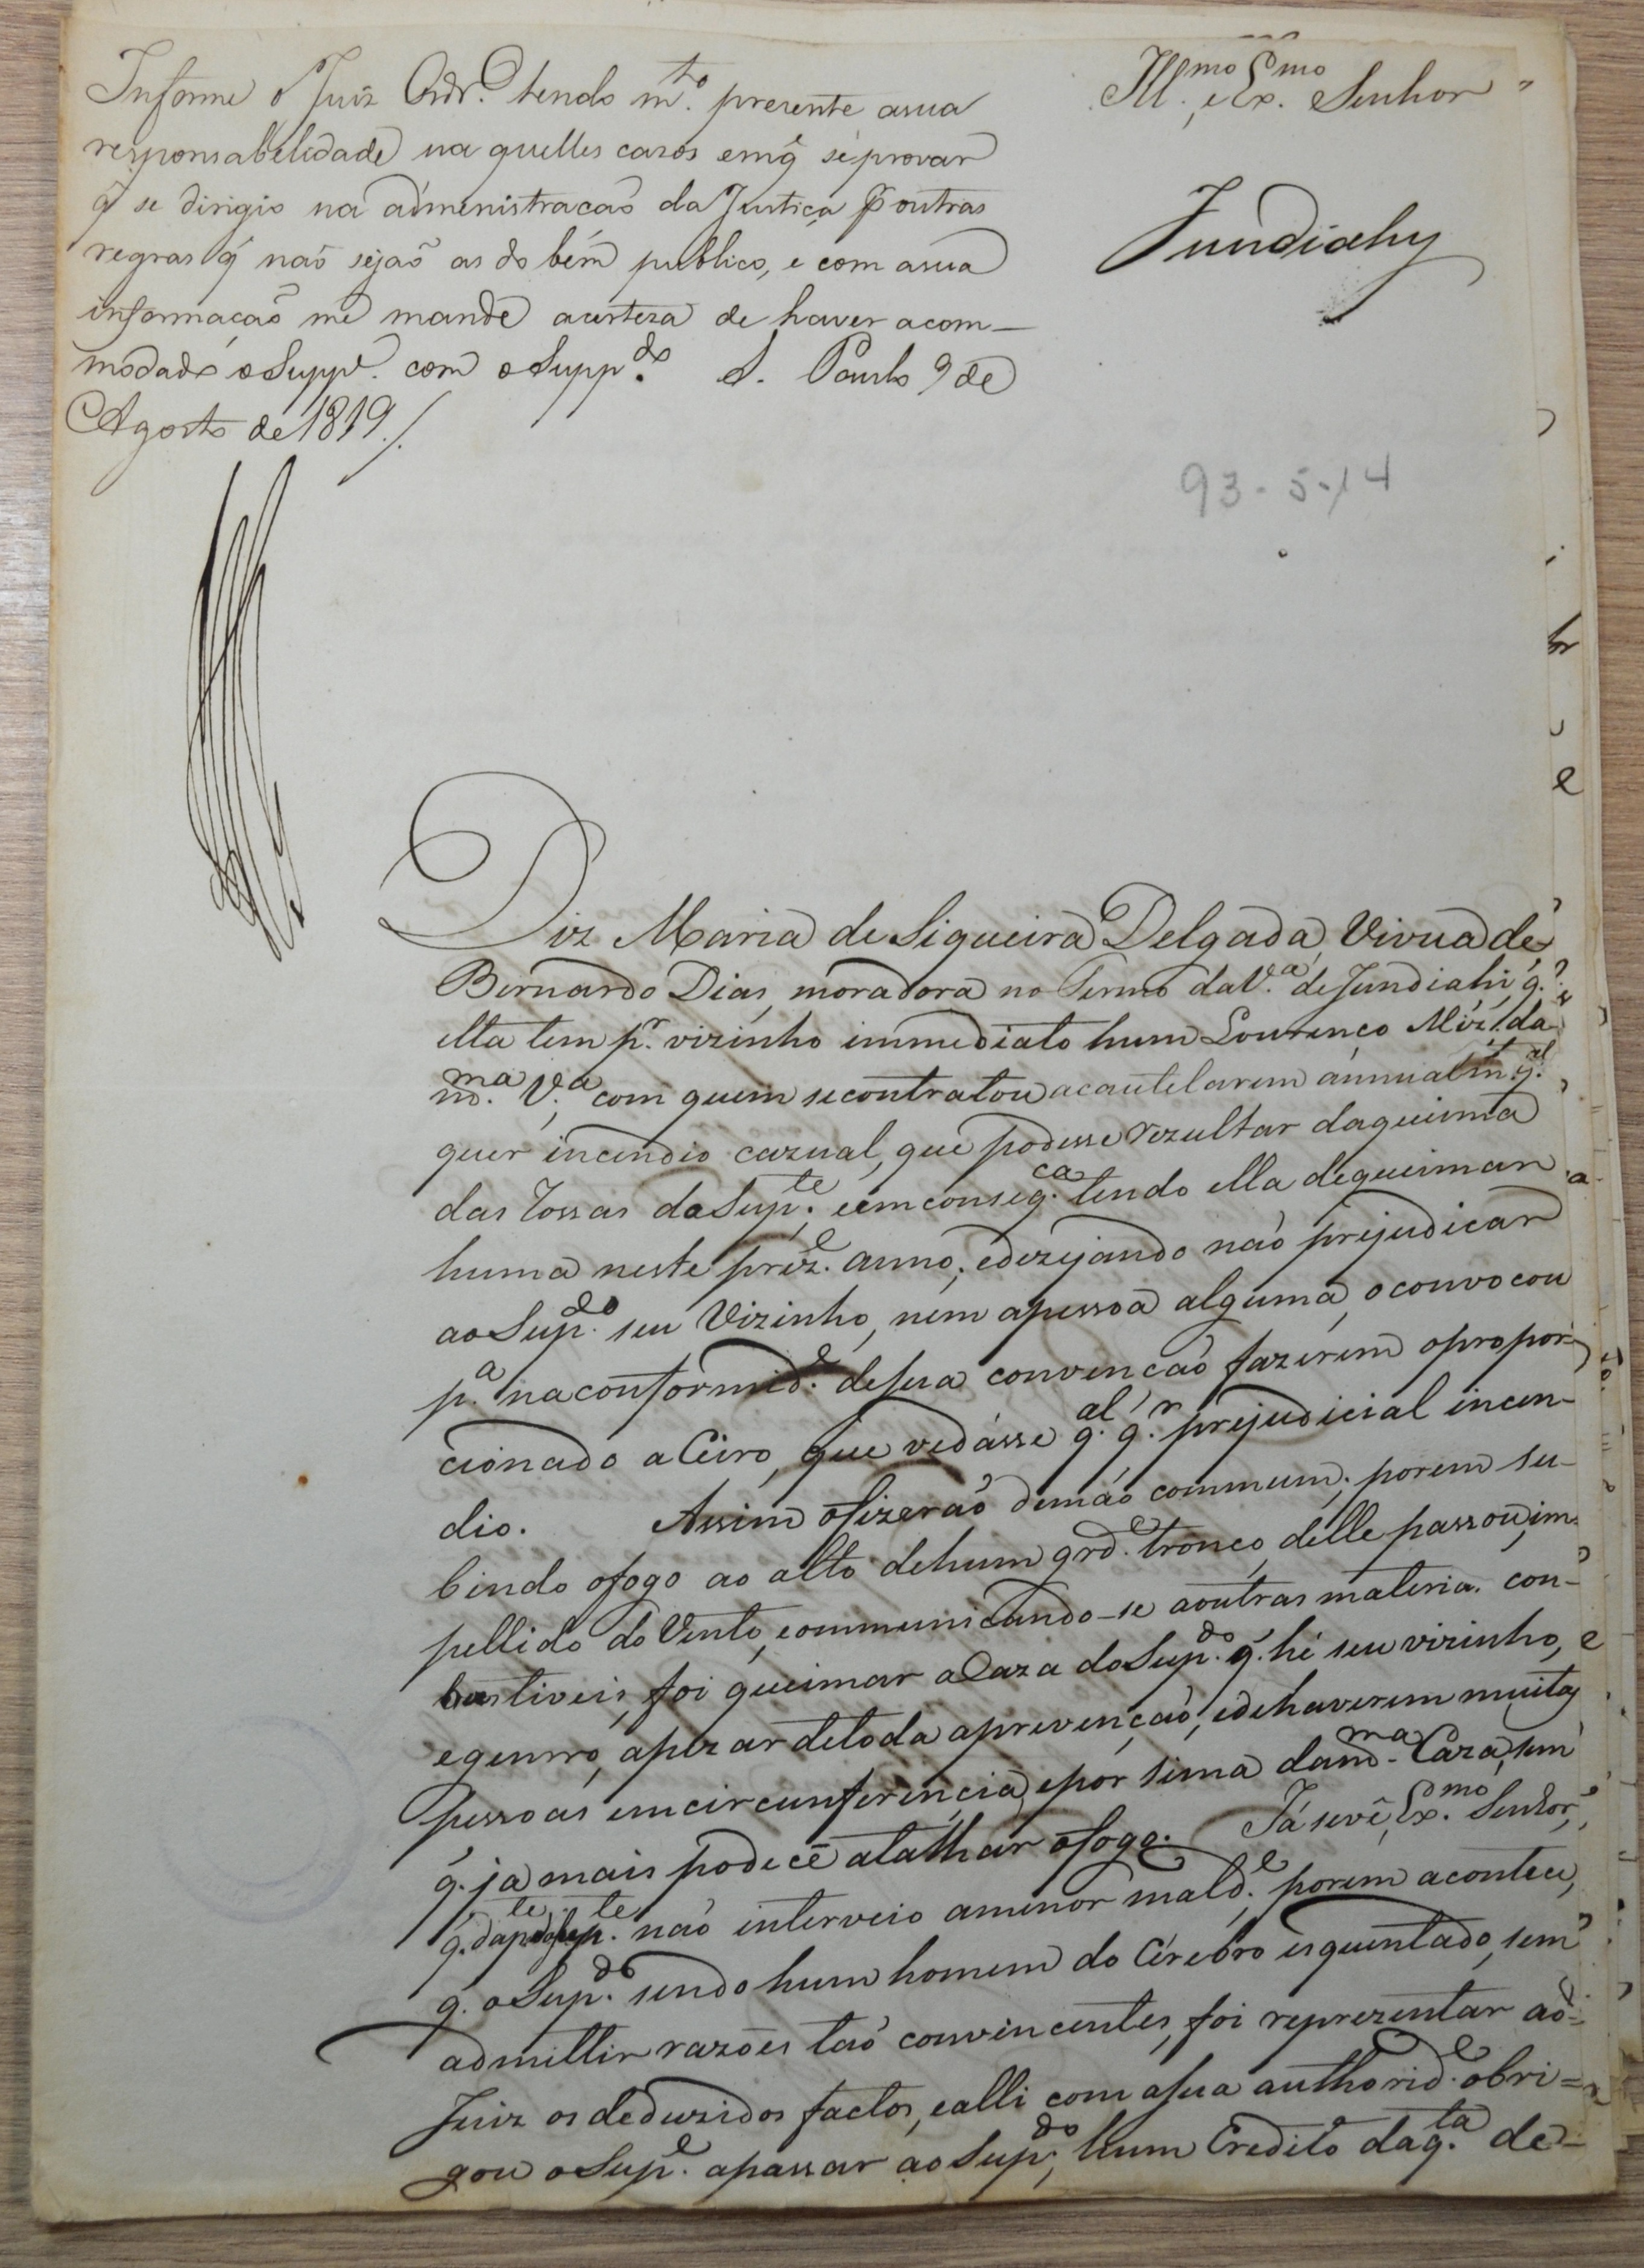 Informe o Juiz Ordr.º tendo m.to presente asua
responsabelidade na quelles cazos emq̃ se provar
q̃ se dirigio na administracaõ da Justiça p outras
regras q̃ naõ sejaõ as do bém publico, e com asua
informaçaõ me mande acerteza de haver acom-
modado o Supp.e com o Supp.do S. Paulo 9 de
Agosto de 1819./.
Ill.mo e Ex.mo Senhor
Jundiahy
93-5-14
Diz Maria de Siqueira Delgada, Viuva de
Bernardo Dias, moradora no Termo daV.ª de Jundiahi, q.
ella tem p.r vizinho immediato hum Lourenço Miz' da
m.ma V.ª, com quem secontratou acautelarem annualm.t q.al
quer incendio cazual, que podesse rezultar daqueima
das Rossas da Sup.te; eemconseq.ca tendo ella dequeimar
huma neste prez.e anno; edezejando naõ prejudicar
ao Sup.do seu Vizinho, nem apessoa alguma, oconvocou
p.ª naconformid.e desua convencaõ fazerem opropor-
cionado aCeiro, que vedásse q.al q.r prejudicial incen-
dio. Assim ofizeraõ demaõ commum; porem su-
bindo ofogo ao alto dehum grd.e tronco, delle passou, im
pellido do Vento, communicando-se aoutras materia. con-
bustiveis, foi queimar aCaza do Sup.do q. hé seu vizinho,
egenrro, apezar detoda aprevençaõ, edehaverem muitas
pessoas emcircunferencia, epor sima dam.ma Caza, sem
q. ja mais podece atalhar ofogo. Já sevê, Ex.mo Senhor,
q. dap.te da Sup.te naõ interveio amenor mald.e; porem acontece,
q. o Sup.do sendo hum homem do Cérebro esquentado, sem
admittir razões taõ convincentes, foi reprezentar ao
Juiz os deduzidos factos, ealli com asua authorid.e obri=
gou o Sup.e apassar ao Sup.do, hum Credito daq.ta de-